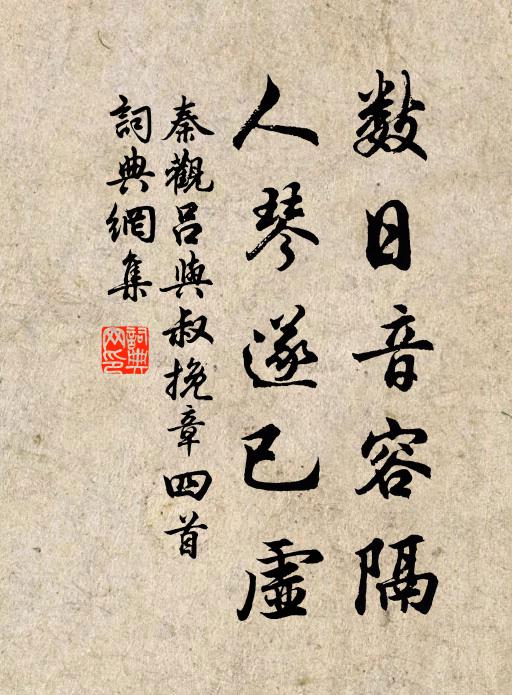 数日音容隔
人琴遂已虛
秦觀呂與叔挽章四首
詞典網集
詞典网印